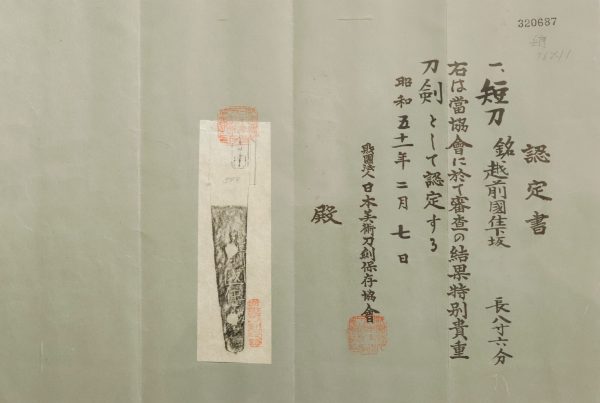 320687
認定書
一、短刀 銘 越前國住下坂 長八寸六分
右は當協會に於て審査の結果特別貴重
刀劍として認定する
昭和五十一年二月七日
財團法人日本美術刀劍保存協會
殿